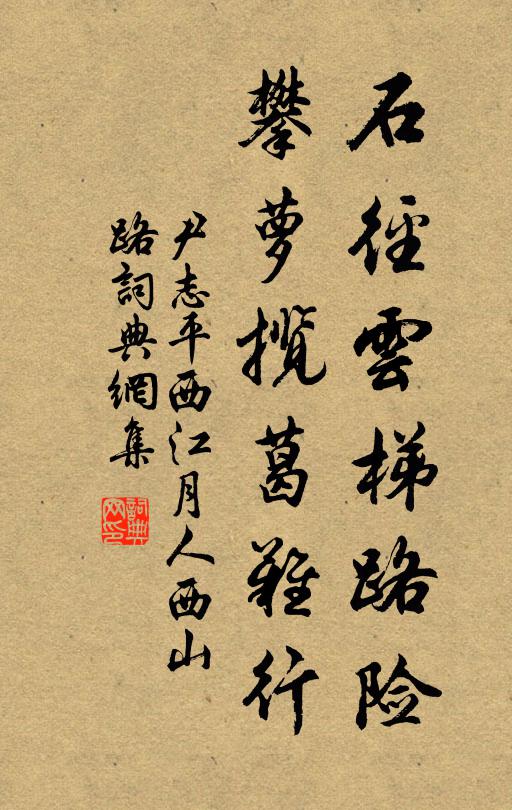 石徑雲梯路险
攀萝揽葛難行
尹志平西江月人西山
路詞典網集
詞典网印